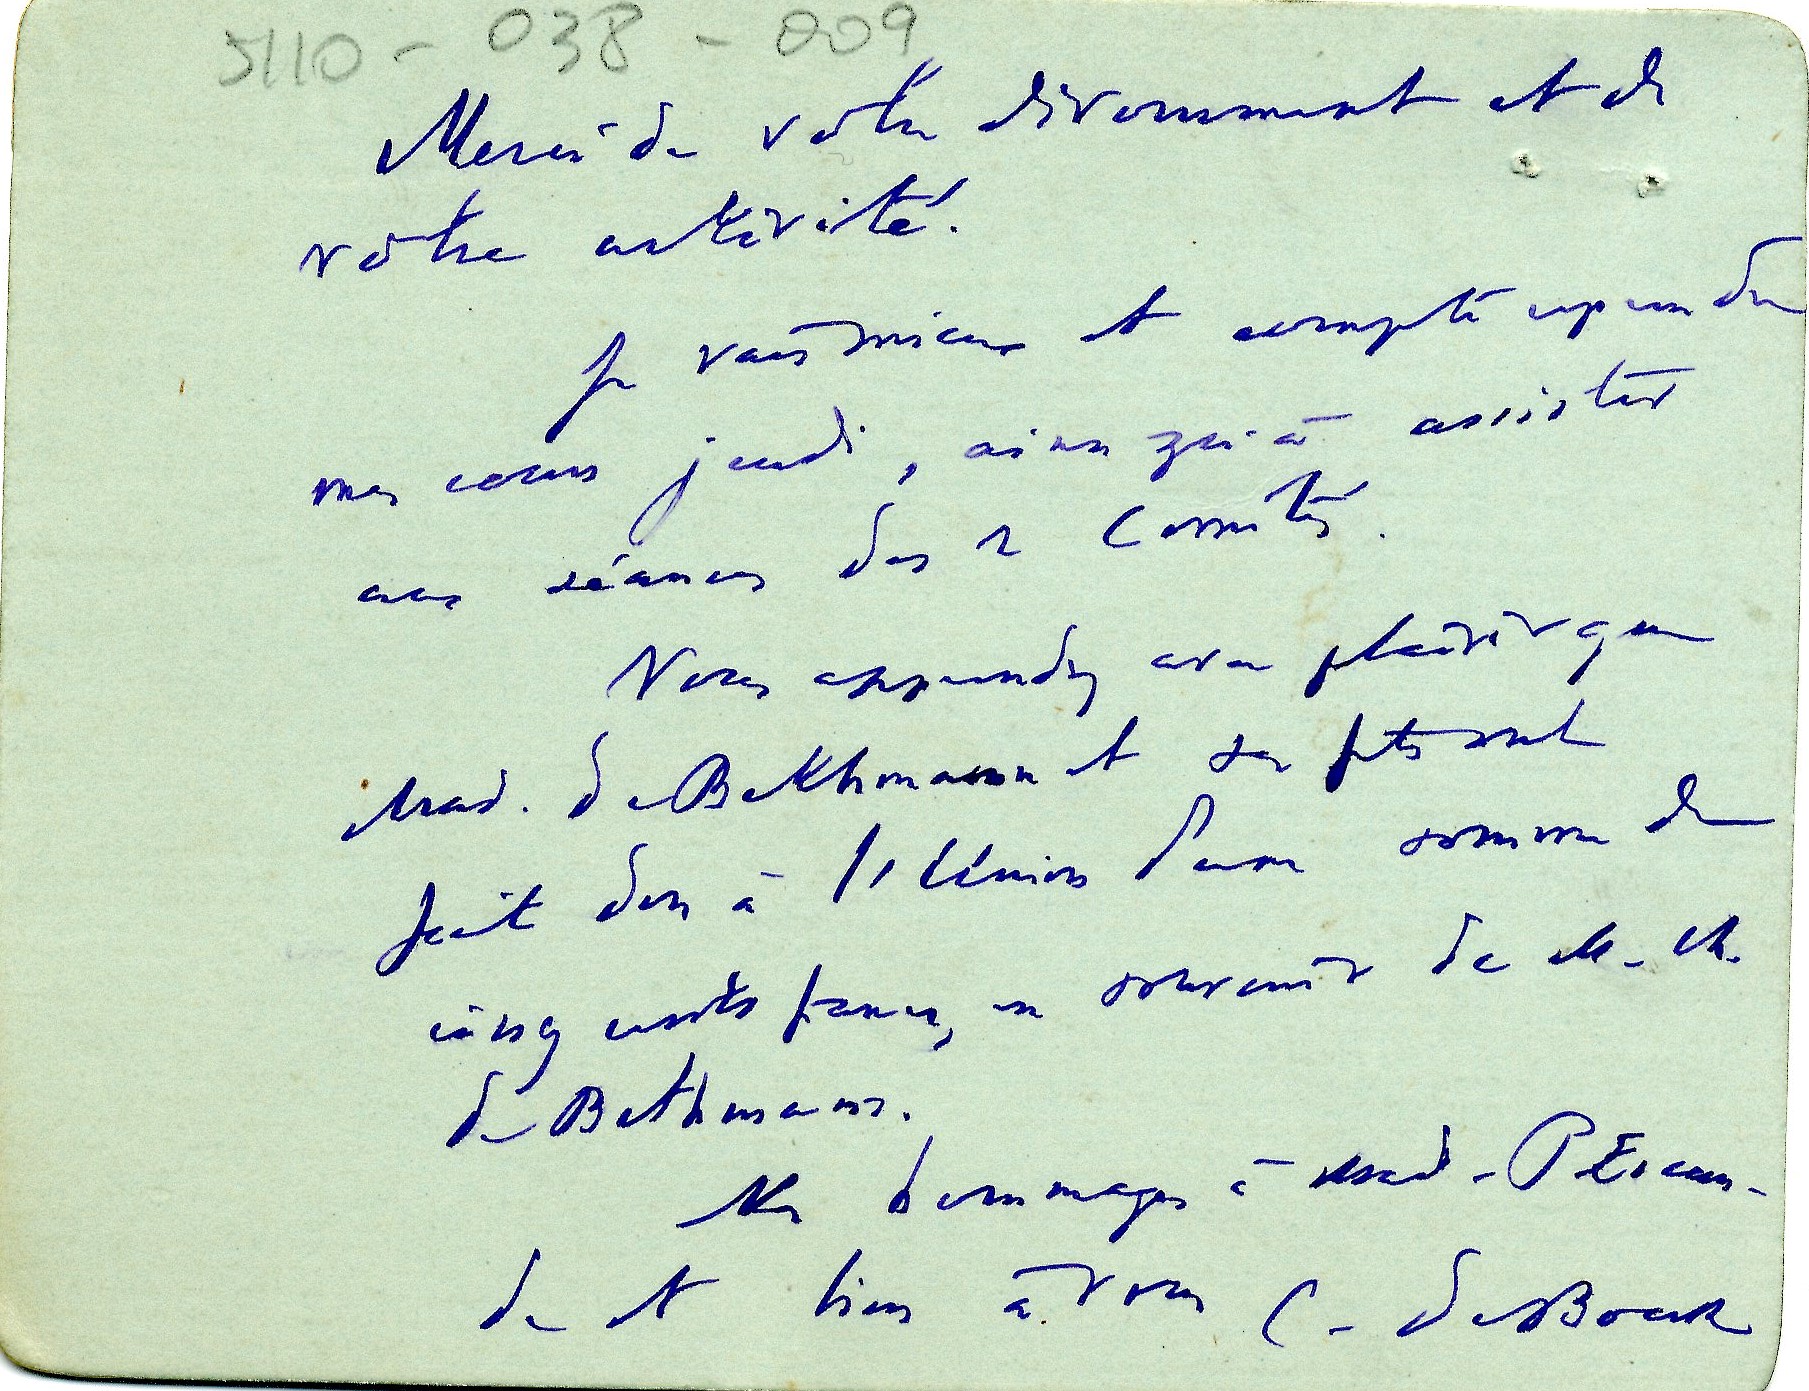 5110 - 038 - 009
Merci de votre dévouement et de
votre activité.
Je vais mieux et compte reprendre
mes cours jeudi, ainsi qu'à assister
aux séances des 2 Comités.
Vous apprendrez avec plaisir que
Mad. de Bethmann et ses fils ont
fait don à l'Union d'une somme de
cinq cents francs, en souvenir de M. M.
de Bethmann.
Mes hommages à Mad.
de et bien à vous C. de Boeck